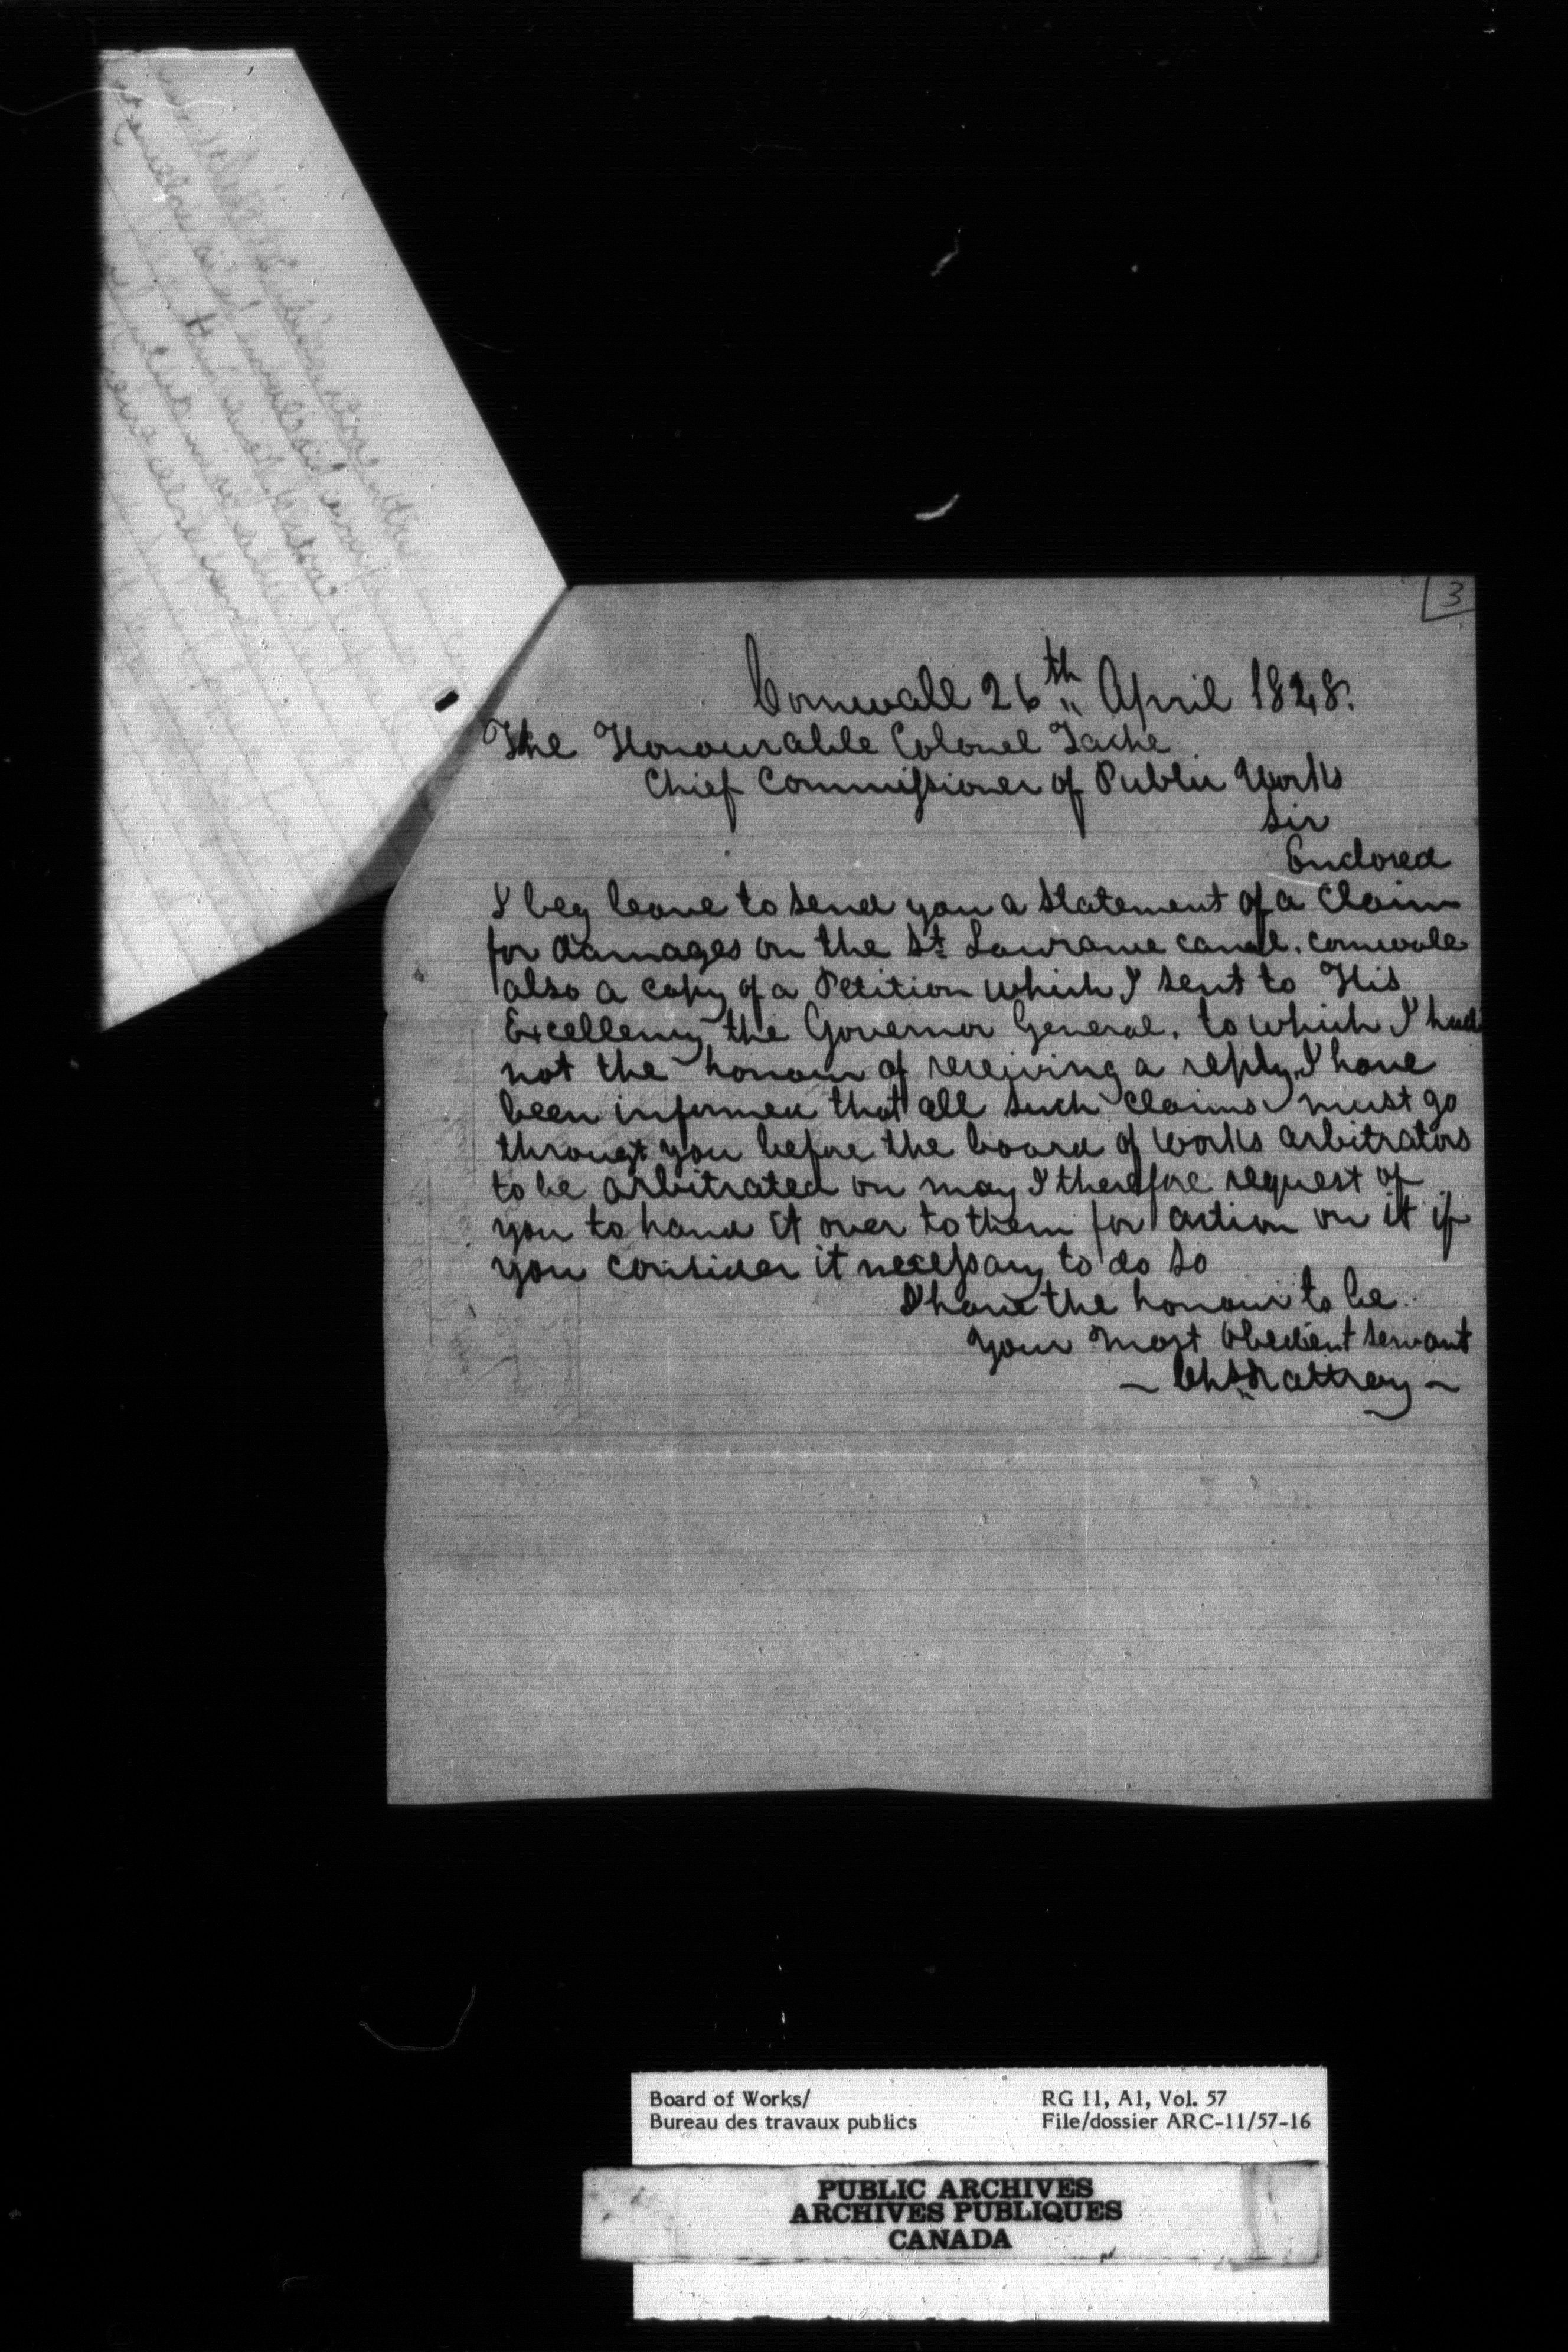 3
Cornwall 26th April 1848.
The Honourable Colonel Tache
Chief Commissioner of Public Works
Sir
Enclosed
I beg leave to send you a Statement of a Claim
for damages on the St Lawrance canal. cornwale
also a copy of a Petition which I sent to His
Excellency the Governor General. to which I had
not the honour of receiving a reply. I have
been informed that all such claims must go
through you before the board of works arbitrators
to be arbitrated on may I therefore request of
you to hand it over to them for action on it if
you consider it necessary to do so
I have the honour to be
your most obedient servant
~ Chs Rattray ~
Board of Works/
Bureau des travaux publics
RG 11, A1, Vol. 57
File/dossier ARC-11/57-16
PUBLIC ARCHIVES
ARCHIVES PUBLIQUES
CANADA